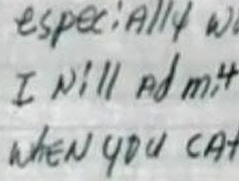 especially w
I Nill Admit
WHEN YOU CAt